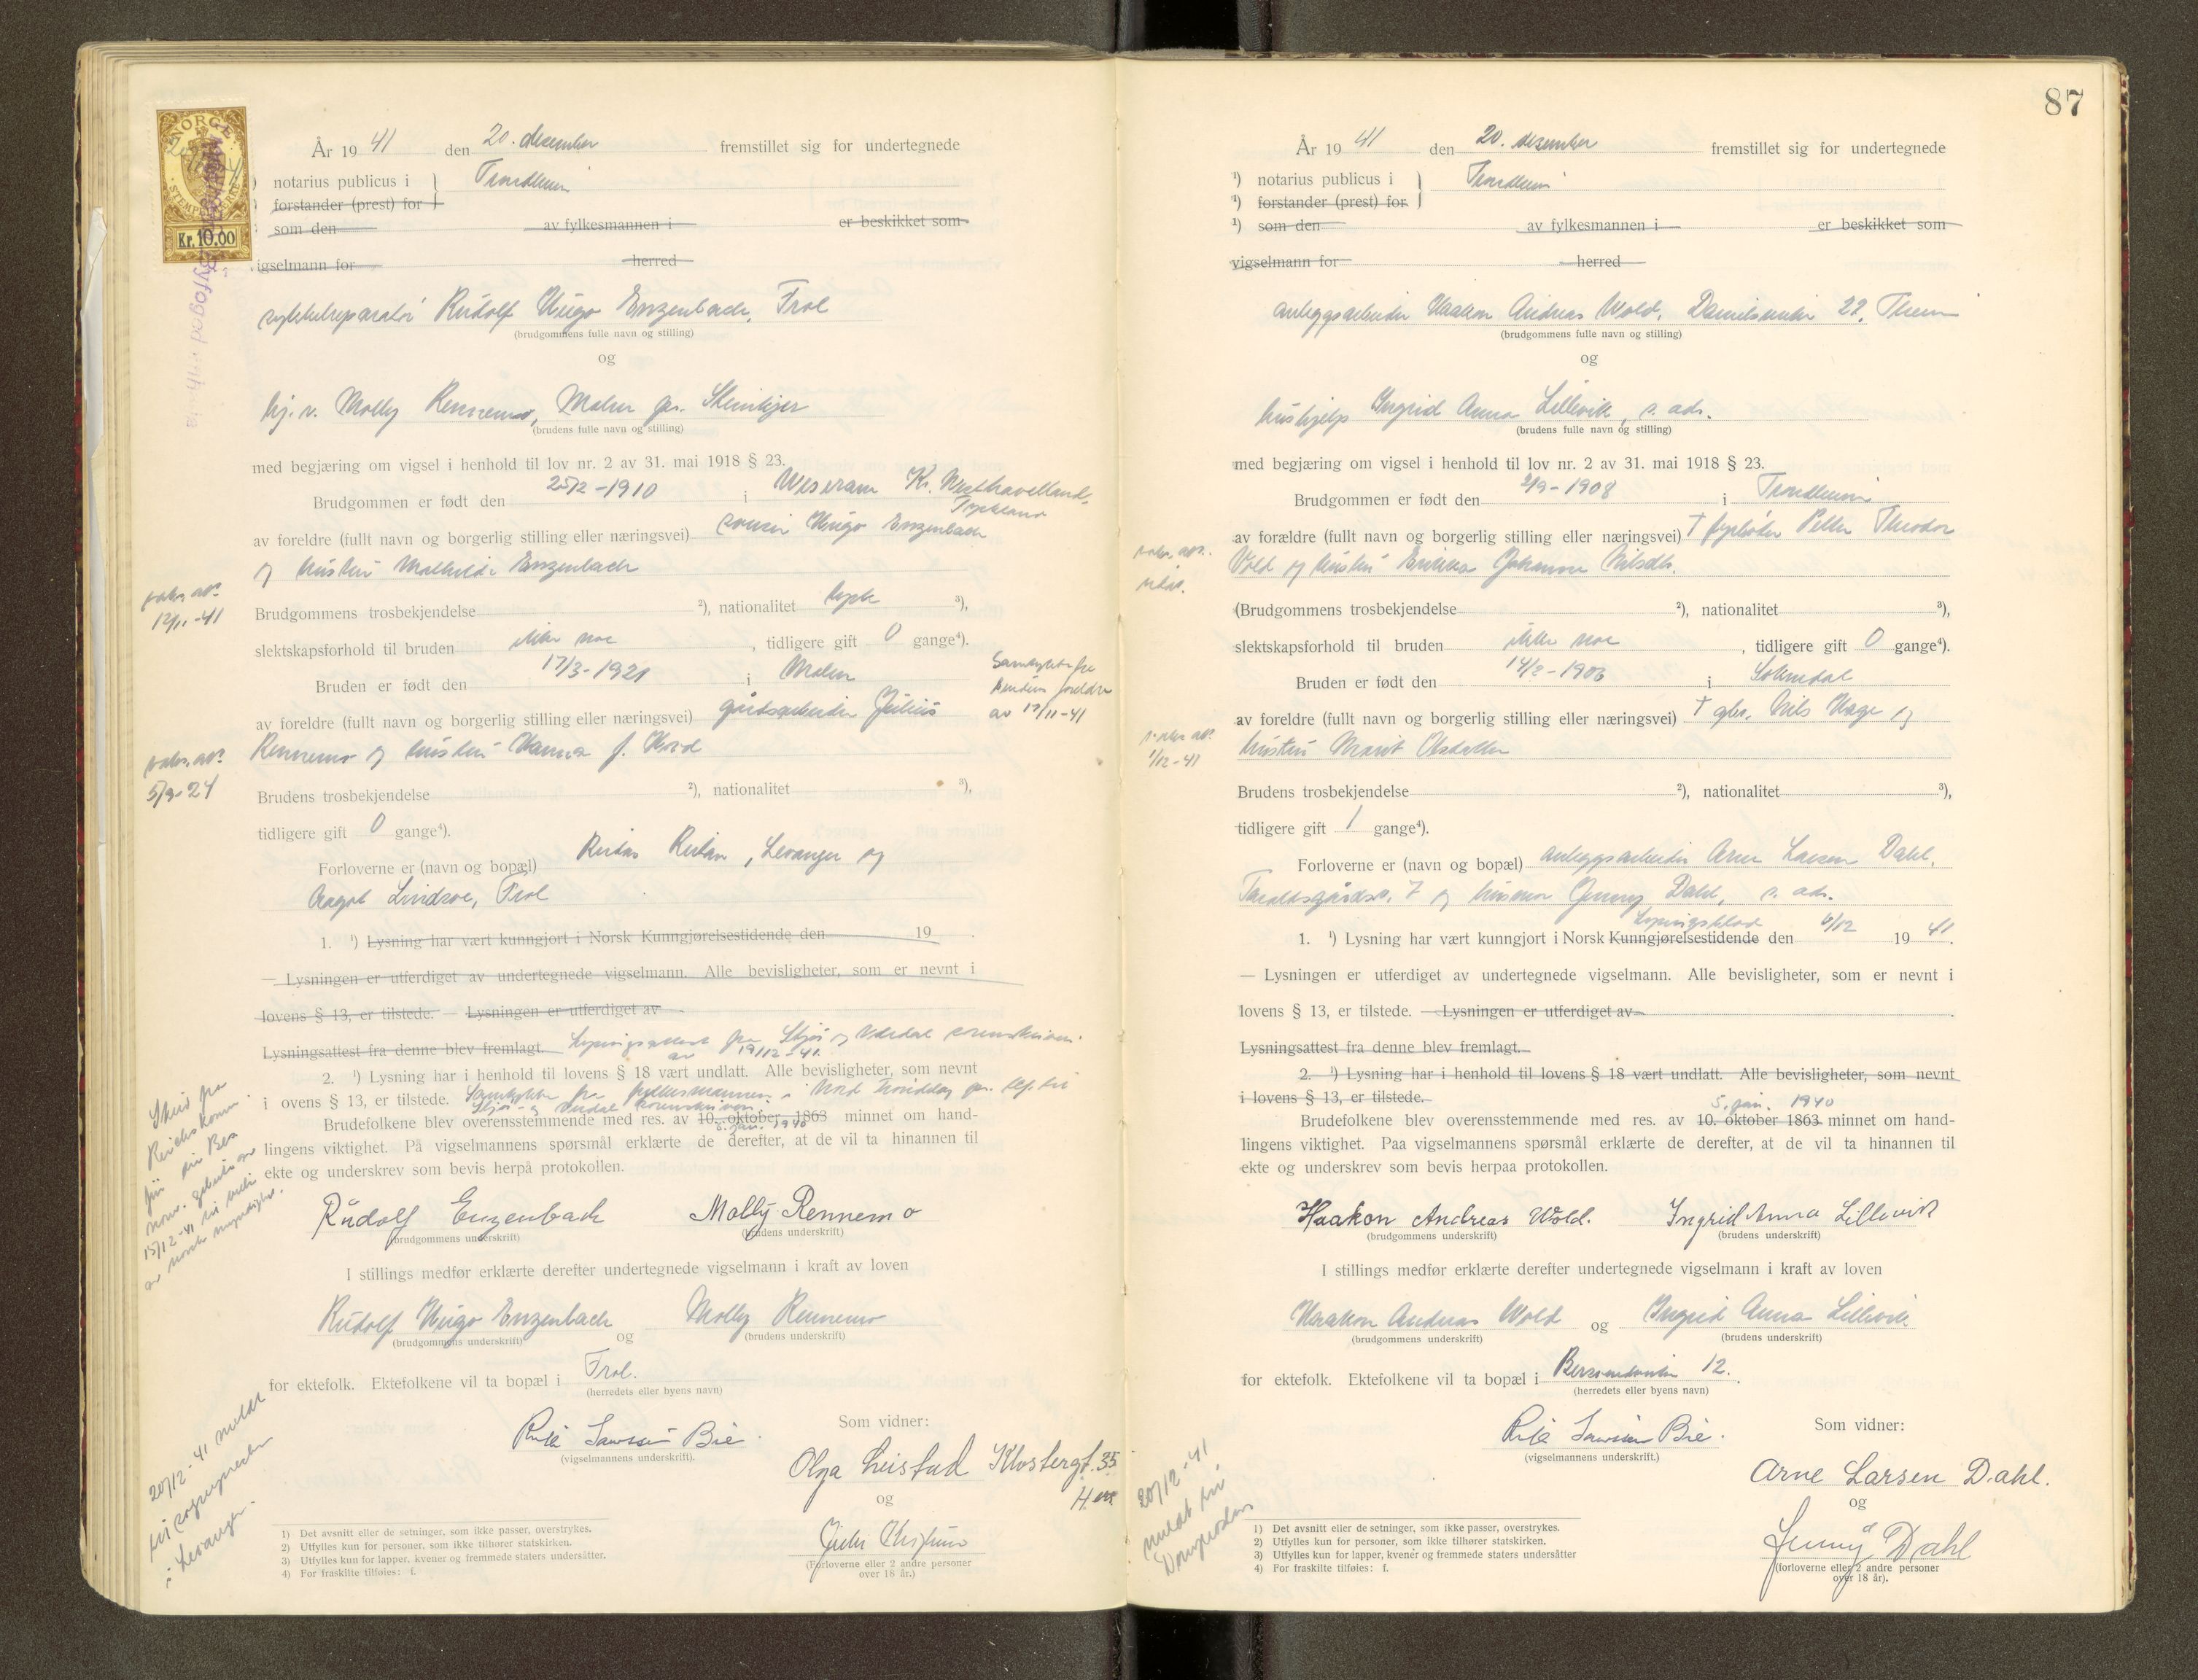 NORGE
STEMPELMERKE
Kr. 10.00
År 19 41 den 20. desember fremstillet sig for undertegnede
notarius publicus i Trondheim
forstander (prest) for
som den av fylkesmannen i er beskikket som
vigselmann for herred
sykkelreparatör Rudolf Hugo Enzenbach, Frol
(brudgommens fulle navn og stilling)
og
hj. v. Molly Rennemo, Malm pr. Steinkjer
(brudens fulle navn og stilling)
med begjæring om vigsel i henhold til lov nr. 2 av 31. mai 1918 § 23.
Brudgommen er født den 25/2-1910 i Weseram Kr. Westhavelland,
Tyskland
av foreldre (fullt navn og borgerlig stilling eller næringsvei) Hugo Enzenbach
og hustru Mathilde Enzenbach
vaks. att.
12/11-41
Brudgommens trosbekjendelse ²), nationalitet tysk ³),
slektskapsforhold til bruden ikke noe, tidligere gift 0 gange⁴).
Bruden er født den 17/3-1921 i Malm
Samtykke fra
brudens foreldre
av 17/11-41
av foreldre (fullt navn og borgerlig stilling eller næringsvei) gårdsarbeider Julius
Rennemo og hustru Hanna f.
vaks. att.
5/9-24
Brudens trosbekjendelse ²), nationalitet ³),
tidligere gift 0 gange⁴).
Forloverne er (navn og bopæl) Levanger og
Aagot Lindsøe, Frol
1. ¹) Lysning har vært kunngjort i Norsk Kunngjørelsestidende den 19
— Lysningen er utferdiget av undertegnede vigselmann. Alle bevisligheter, som er nevnt i
lovens § 13, er tilstede. — Lysningen er utferdiget av
Lysningsattest fra denne blev fremlagt. Lysningsattest fra Stjør- og Verdal sorenskriveri
av 19/12-41.
2. ¹) Lysning har i henhold til lovens § 18 vært undlatt. Alle bevisligheter, som nevnt
i ovens § 13, er tilstede. Samtykke fra fylkesmannen i Nord Trøndelag
Stjør- og Verdal sorenskriveri
Brudefolkene blev overensstemmende med res. av 10. oktober 1863 5. jan. 1940 minnet om hand-
lingens viktighet. På vigselmannens spørsmål erklærte de derefter, at de vil ta hinannen til
ekte og underskrev som bevis herpå protokollen.
Skriv fra
Reichskomm.
für die Bes.
norw. Gebiete av
15/12-41
av norsk myndighet.
Rudolf Enzenbach Molly Rennemo
(brudgommens underskrift) (brudens underskrift)
I stillings medfør erklærte derefter undertegnede vigselmann i kraft av loven
Rudolf Hugo Enzenbach og Molly Rennemo
(brudgommens underskrift) (brudens underskrift)
for ektefolk. Ektefolkene vil ta bopæl i Frol.
(herredets eller byens navn)
Bie.
(vigselmannens underskrift).
Som vidner:
Olga Leistad Klostergt. 35
og
(Forloverne eller 2 andre personer
over 18 år.)
20/12-41 meldt
til sognepresten
i Levanger.
1) Det avsnitt eller de setninger, som ikke passer, overstrykes.
2) Utfylles kun for personer, som ikke tilhører statskirken.
3) Utfylles kun for lapper, kvener og fremmede staters undersåtter.
4) For fraskilte tilføies: f.
87
År 19 41 den 20. desember fremstillet sig for undertegnede
¹) notarius publicus i Trondheim
¹) forstander (prest) for
¹) som den av fylkesmannen i er beskikket som
vigselmann for herred
anleggsarbeider Haakon Andreas Wold, 22, Tr.heim
(brudgommens fulle navn og stilling)
og
hushjelp Ingrid Anna Lillevik, s. ads.
(brudens fulle navn og stilling)
med begjæring om vigsel i henhold til lov nr. 2 av 31. mai 1918 § 23.
Brudgommen er født den 2/9-1908 i Trondheim
av forældre (fullt navn og borgerlig stilling eller næringsvei) † fyrbøter Petter Theodor
Vold og hustru Johanna Nilsdtr.
vaks. att.
(Brudgommens trosbekjendelse ²), nationalitet ³),
slektskapsforhold til bruden ikke noe, tidligere gift 0 gange⁴).
Bruden er født den 14/2-1906 i Soknedal
av foreldre (fullt navn og borgerlig stilling eller næringsvei) † gbr. Nils Hage og
hustru Marit Olsdatter
vaks. att.
1/12-41
Brudens trosbekjendelse ²), nationalitet ³),
tidligere gift 1 gange⁴).
Forloverne er (navn og bopæl) anleggsarbeider Arne Larsen Dahl,
Taraldsgårdsv. 7 og husmor Jenny Dahl, s. ads.
1. ¹) Lysning har vært kunngjort i Norsk Kunngjørelsestidende Lysingsblad den 6/12 19 41.
— Lysningen er utferdiget av undertegnede vigselmann. Alle bevisligheter, som er nevnt i
lovens § 13, er tilstede. — Lysningen er utferdiget av
Lysningsattest fra denne blev fremlagt.
2. ¹) Lysning har i henhold til lovens § 18 vært undlatt. Alle bevisligheter, som nevnt
i lovens § 13, er tilstede.
Brudefolkene blev overensstemmende med res. av 10. oktober 1863 5. jan. 1940 minnet om hand-
lingens viktighet. Paa vigselmannens spørsmål erklærte de derefter, at de vil ta hinannen til
ekte og underskrev som bevis herpaa protokollen.
Haakon Andreas Wold. Ingrid Anna Lillevik
(brudgommens underskrift) (brudens underskrift)
I stillings medfør erklærte derefter undertegnede vigselmann i kraft av loven
Haakon Andreas Wold og Ingrid Anna Lillevik
(brudgommens underskrift) (brudens underskrift)
for ektefolk. Ektefolkene vil ta bopæl i 12.
(herredets eller byens navn)
Bie.
(vigselmannens underskrift.)
Som vidner:
Arne Larsen Dahl.
og
Jenny Dahl
(forloverne eller 2 andre personer
over 18 år).
20/12-41
meldt til
Domprosten
1) Det avsnitt eller de setninger, som ikke passer, overstrykes.
2) Utfylles kun for personer, som ikke tilhører statskirken.
3) Utfylles kun for lapper, kvener og fremmede staters undersåtter
4) For fraskilte tilføies: f.